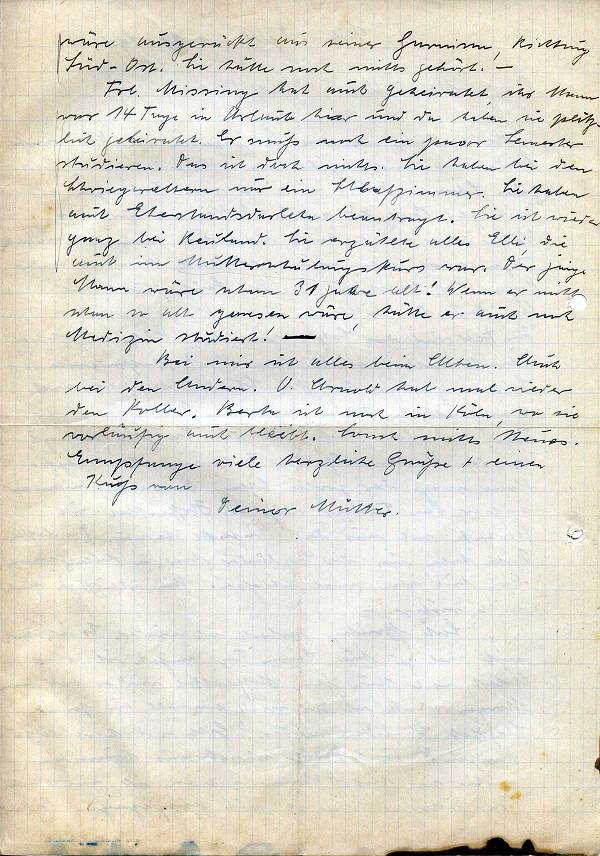 wäre ausgerückt aus seiner Garnison, Richtung
Süd-Ost. Sie hätte noch nichts gehört. –
Frl. Missing hat auch geheiratet, ihr Mann
war 14 Tage in Urlaub hier und da haben sie plötz-
lich geheiratet. Er muß noch ein paar Semester
studieren. Das ist doch nichts. Sie haben bei den
Schwiegereltern nur ein Schlafzimmer. Sie haben
auch Ehestandsdarlehn beantragt. Sie ist wieder
ganz bei Kauland. Sie erzählte alles Elli, die
auch im Mutterschulungskurs war. Der junge
Mann wäre schon 31 Jahre alt! Wenn er nicht
schon so alt gewesen wäre, hätte er auch noch
Medizin studiert! —
Bei mir ist alles beim Alten. Auch
bei den Andern. O. Arnold hat mal wieder
den Koller. Berta ist noch in Köln, wo sie
vorläufig auch bleibt. Sonst nichts Neues.
Empfange viele herzliche Grüße + einen
Kuß von
Deiner Mutter.